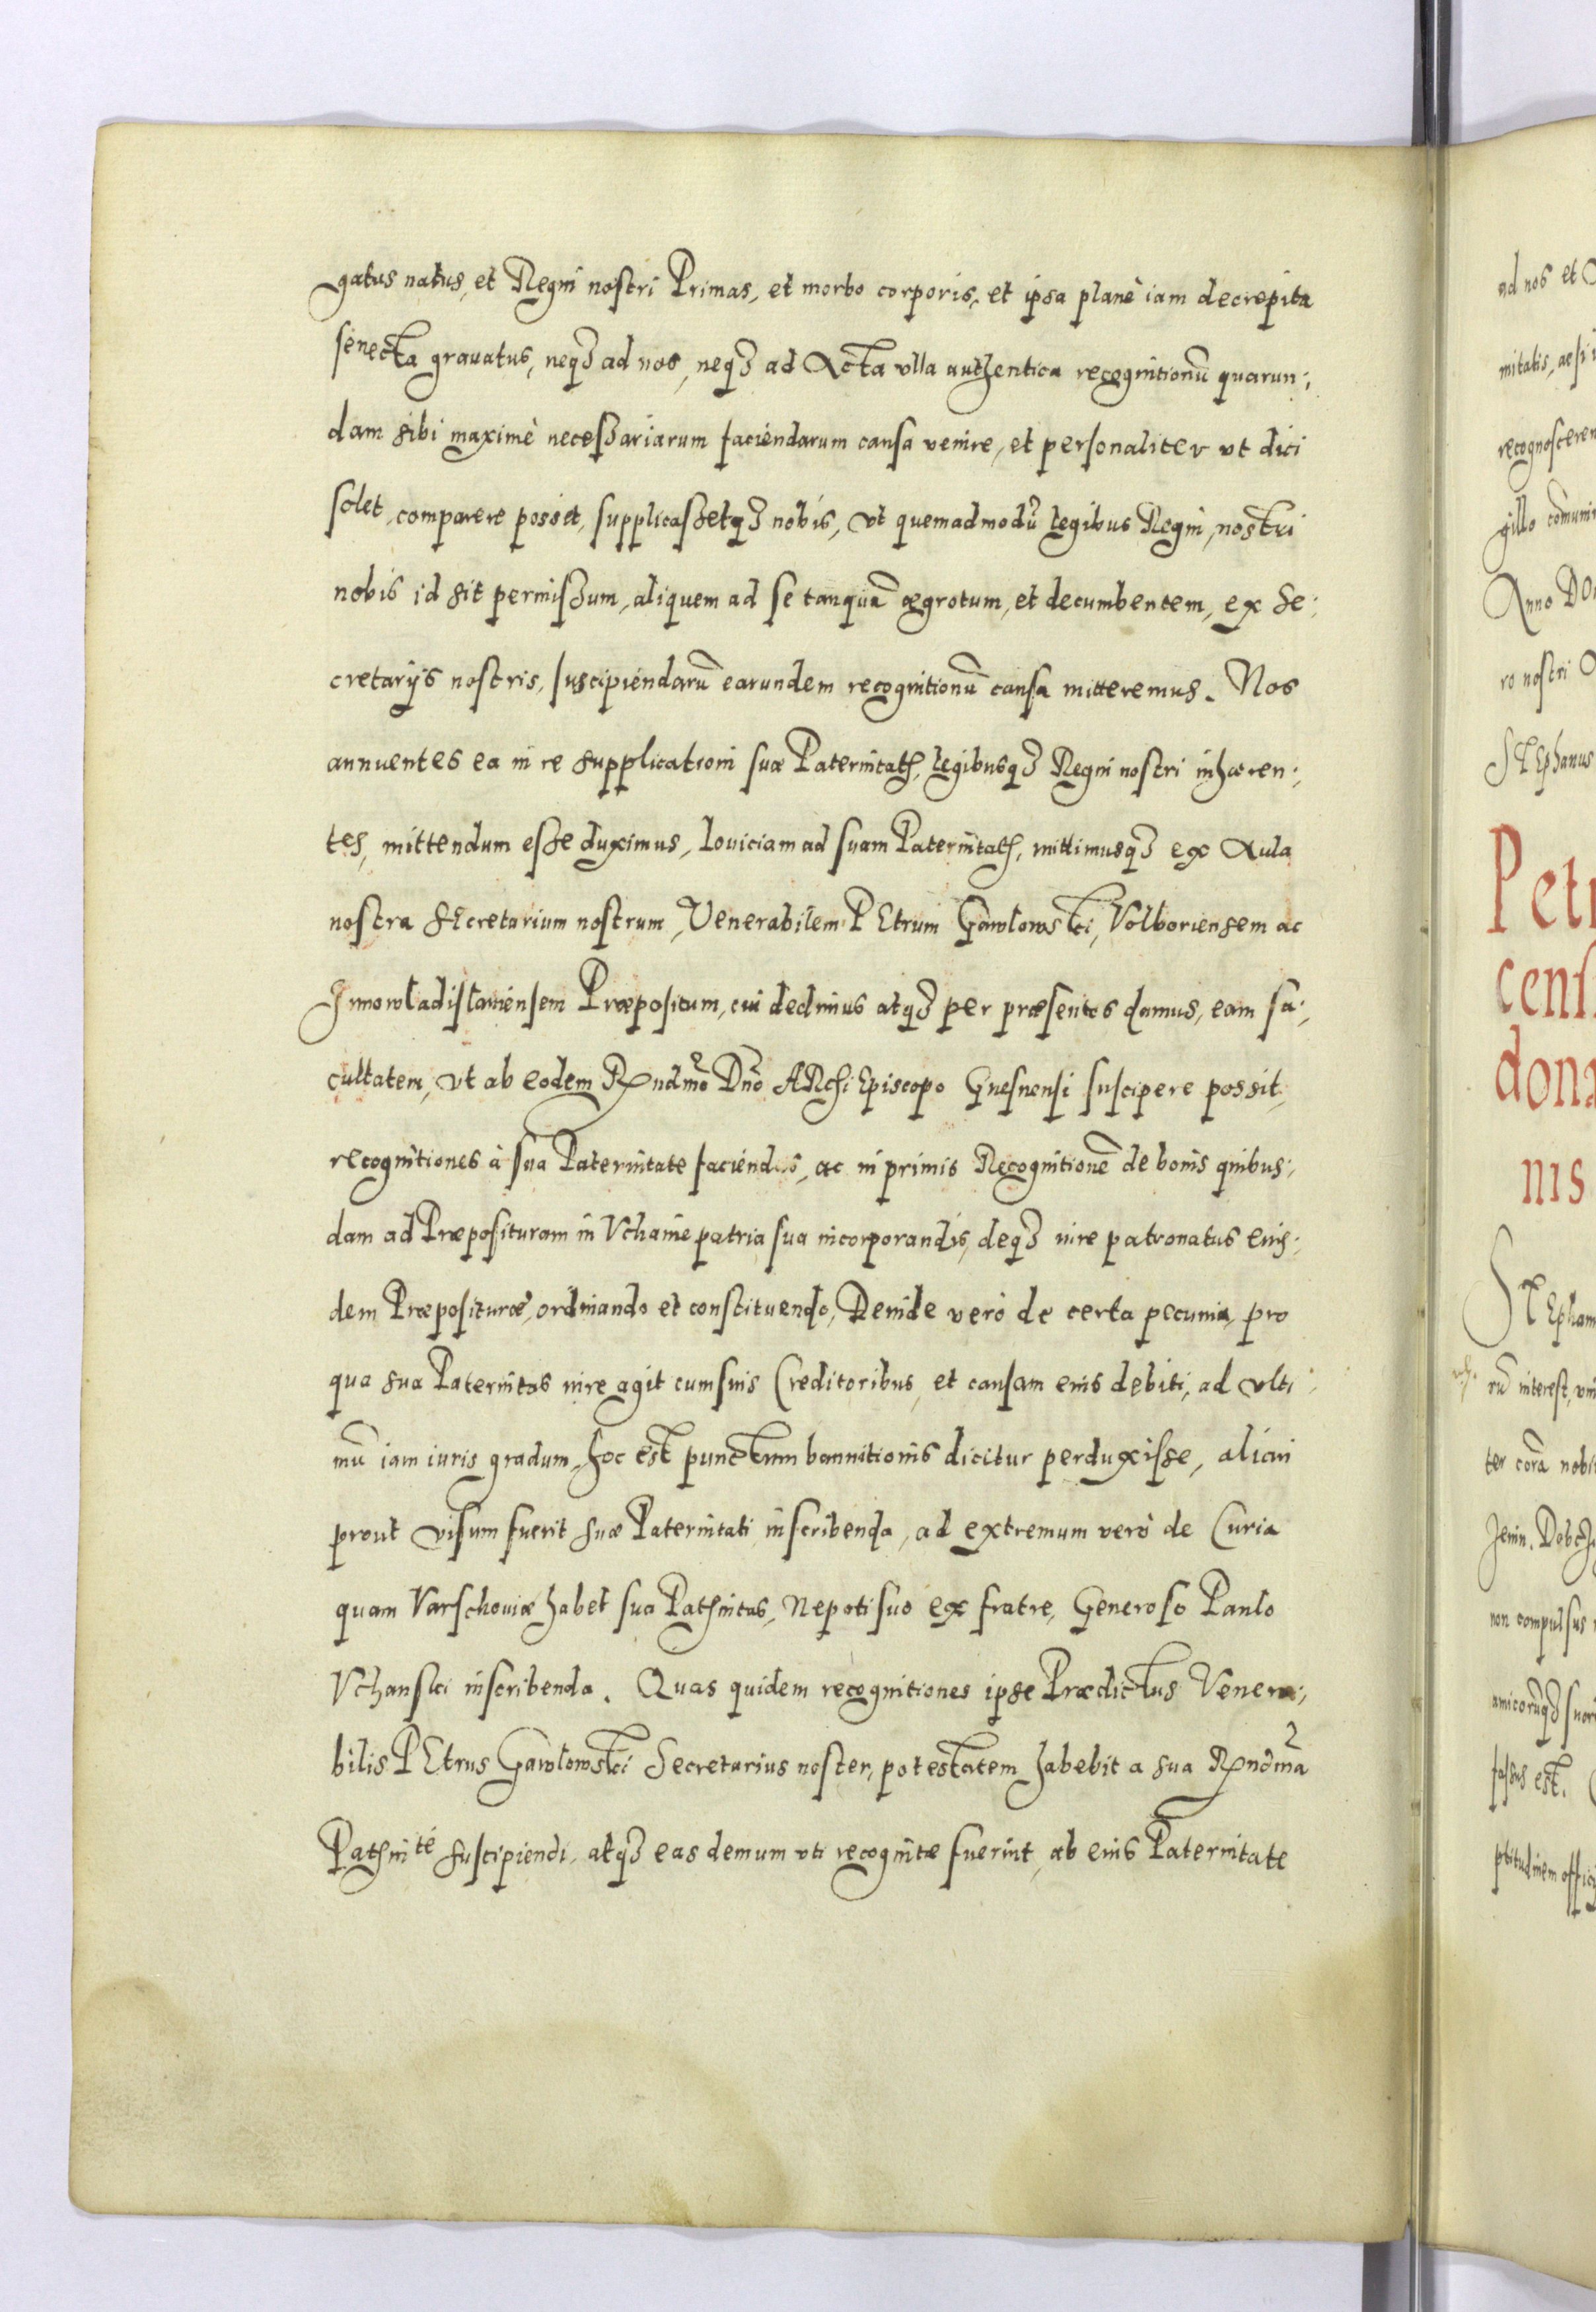 gatus natus, et Regni nostri Primas, et morbo corporis, et ipsa planè iam decrepita
senecta grauatus, neqȝ ad nos, neqȝ ad Acta vlla authentica recognitionū quarun:
dam sibi maximè necessariarum faciendarum causa venire, et personaliter vt dici
solet, comparere posset, supplicassetqȝ nobis, vt quemadmodū legibus Regni nostri
nobis id sit permissum, aliquem ad se tanquā ægrotum, et decumbentem, ex Se:
cretarijs nostris, suscipiendarū earundem recognitionū causa mitteremus. Nos
annuentes ea in re supplicationi suæ Paternitatis, legibusqȝ Regni nostri inhæren:
tes, mittendum esse duximus, Louiciam ad suam Paternitatē, mittimusqȝ ex Aula
nostra SEcretarium nostrum, Venerabilem PEtrum Gawlowski, Volboriensem ac
Jnnowladislauiensem Præpositum, cui dedimus atqȝ per præsentes damus, eam fa:
cultatem, vt ab eodem Rndmo Dno ARchiEpiscopo Gnesnensi suscipere possit,
recognitiones à sua Paternitate faciendas, ac in primis Recognitionē de bonis quibus:
dam ad Præposituram in Vchanie patria sua incorporandis, deqȝ iure patronatus eius:
dem Præposituræ, ordinando et constituendo, Deinde verò de certa pecunia, pro
qua sua Paternitas iure agit cum suis Creditoribus, et causam eius debiti, ad vlti:
mū iam iuris gradum, hoc est punctum bannitionis dicitur perduxisse, alicui
prout visum fuerit suæ Paternitati inscribenda, ad extremum verò de Curia
quam Varschouiæ habet sua Paternitas, Nepoti suo ex fratre, Generoso Paulo
Vchanski inscribenda. Quas quidem recognitiones ipse Prædictus Venera:
bilis PEtrus Gawlowski Secretarius noster, potestatem habebit a sua Rndma
Paternite suscipiendi, atqȝ eas demum vti recognitæ fuerint, ab eius Paternitate
ad nos et
mitatis, ac si
recognosceren
gillo cōmuni
Anno DOi
ro nostri
STEphanus
Petr
cens
dona
nis
STEphan
rū interest, vni
ter corā nobi
non compulsus
amicorūqȝ suor
fassus est.
ptitudinem offici